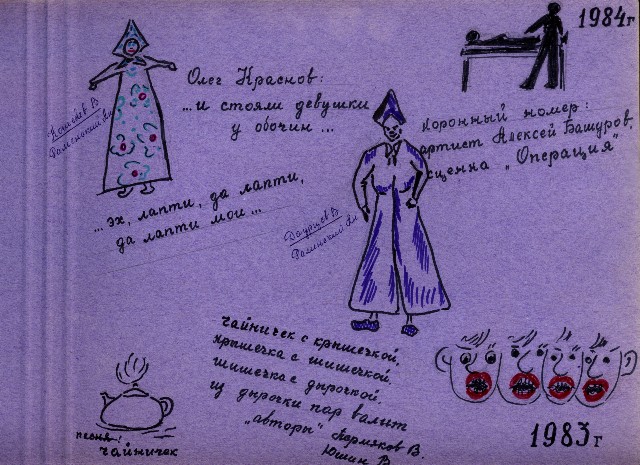 1984г
Олег Краснов:
...и стояли девушки
у обочин...
Коронный номер:
артист Алексей Башуров.
сценка „Операция"
...эх, лапти, да лапти,
да лапти мои...
Чайничек с крышечкой,
крышечка с шишечкой,
шишечка с дырочкой.
из дырочки пар валит
„авторы" Пермяков В.
Юшин В.
песня:
чайничек
1983г